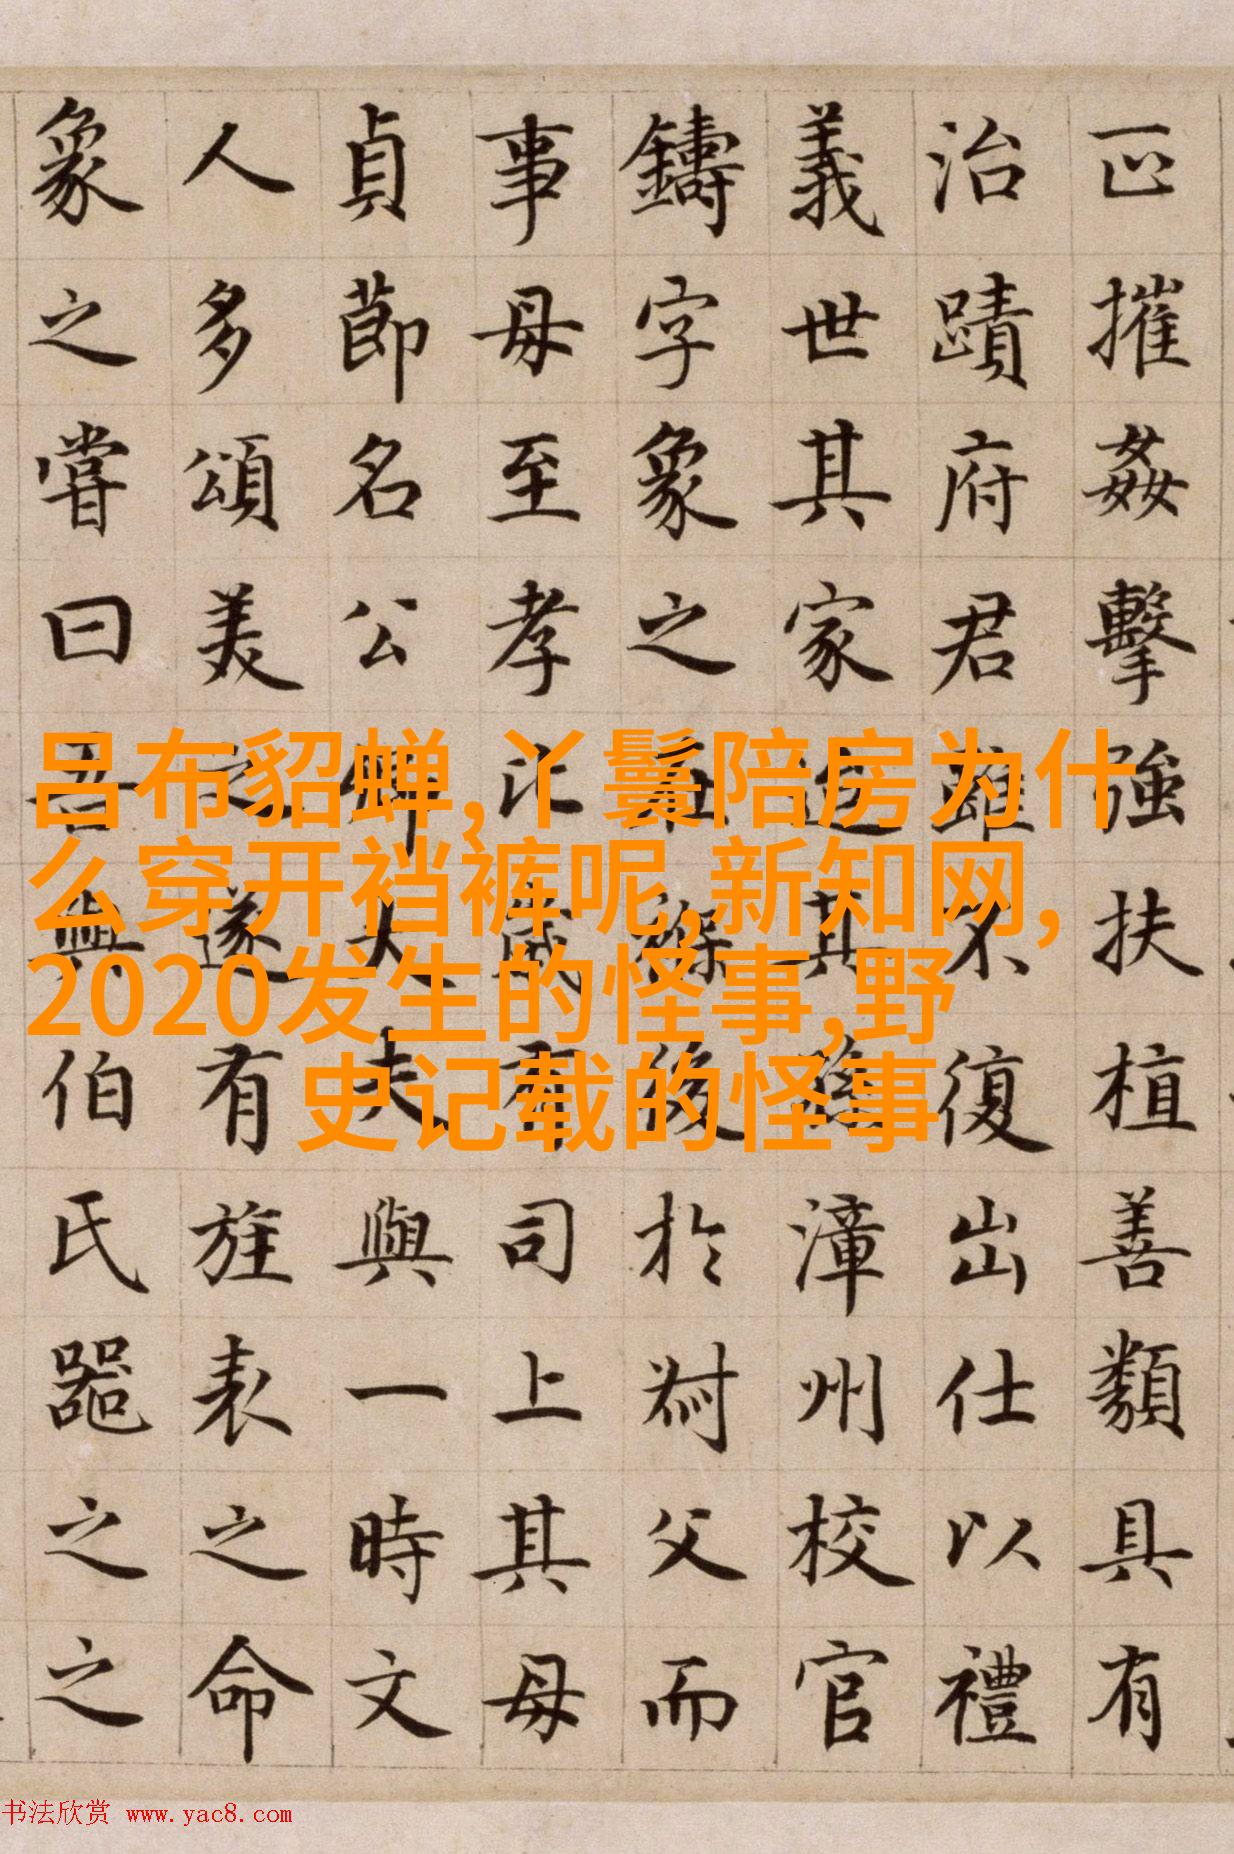 摧姦擊強扶植善類具有
治蹟府君雖不復出仕以禮
義世其家其漳州校官
鑄字象之後於父而
事母至孝有司上其母
貞節名公卿大夫與一時文
人多頌美之遂有旌表之命
象之嘗曰吾與伯氏器之之
吕布貂蝉,丫鬟陪房为什
么穿开裆裤呢,新知网,
2020发生的怪事,野
史记载的怪事
书法欣赏 www.yac8.com